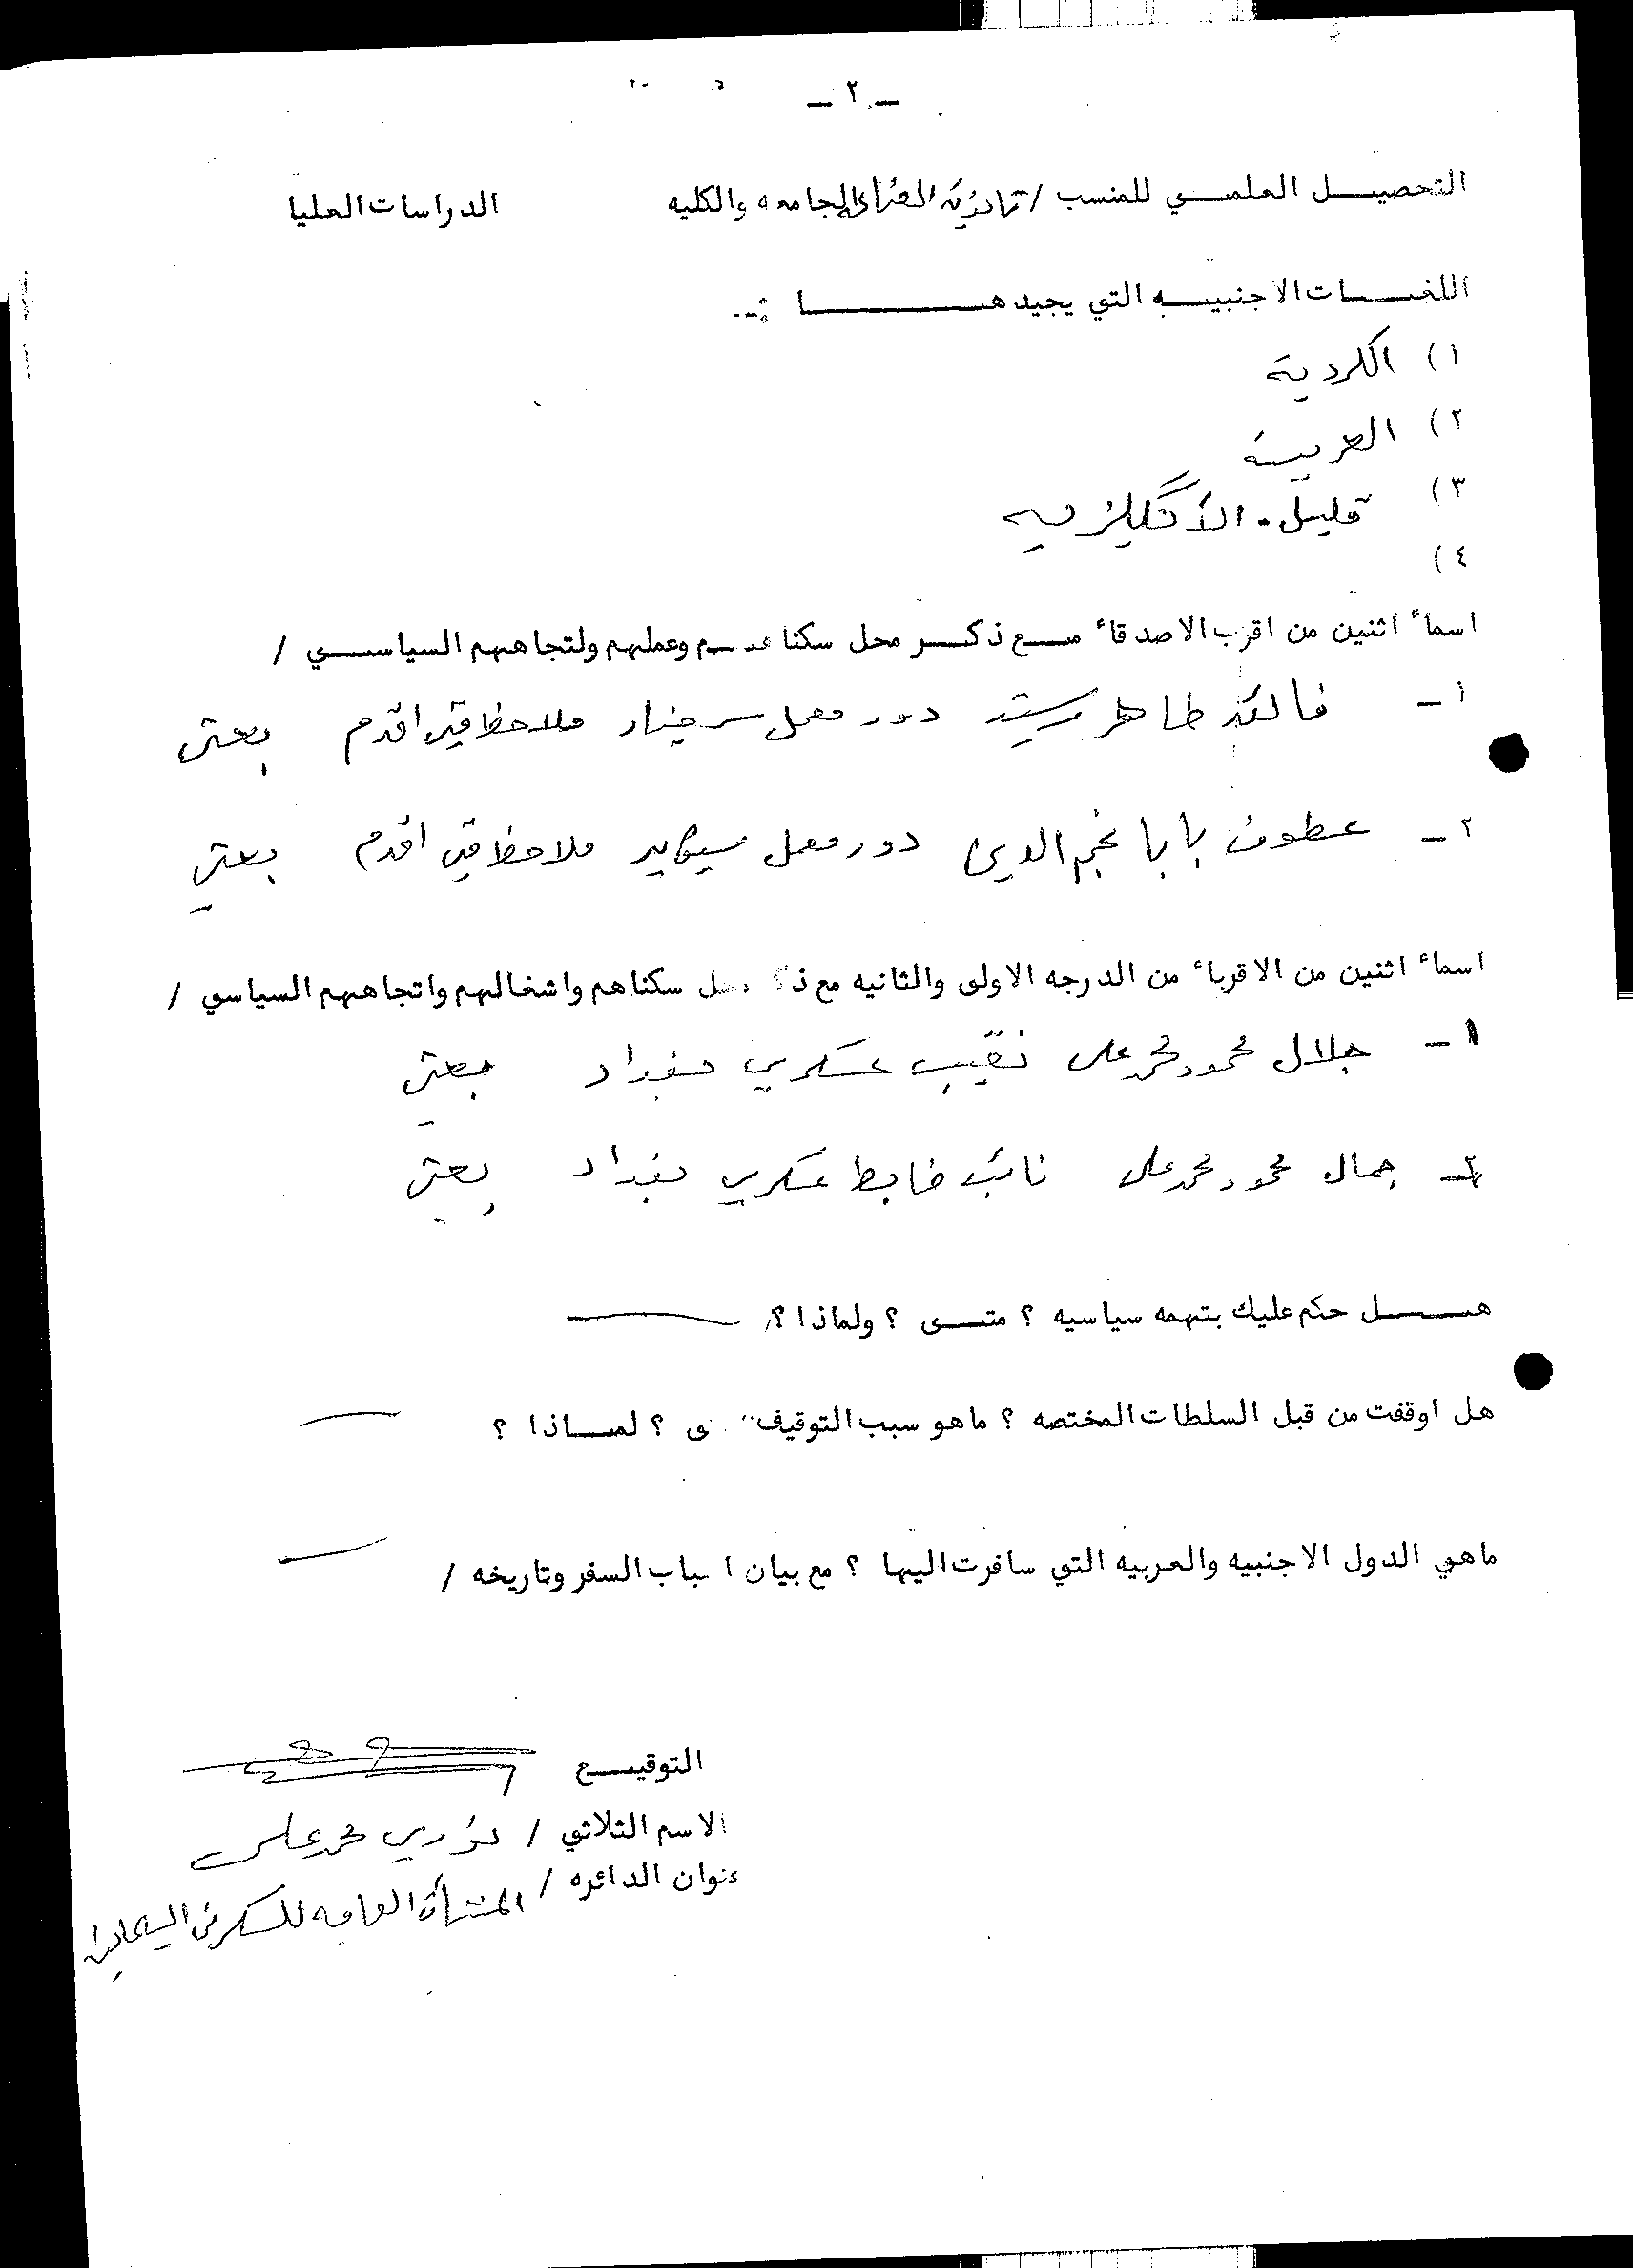 ـ ٢ ـ
التحصيل العلمي للمنسب / الجامعه والكليه الدراسات العليا
اللغات الاجنبيه التي يجيدها :ـ
١) الكردية
٢) العربية
٣) قليل ـ الأنگليزيه
٤)
اسماء اثنين من اقرب الاصدقاء مع ذكر محل سكناهم وعملهم ولتجاههم السياسي /
١ـ طاهر رشيد دور معمل سرجنار ملاحظ فني اقدم بعثي
٢ـ عطوف بابا نجم الدين دور معمل ملاحظ فني اقدم بعثي
اسماء اثنين من الاقرباء من الدرجه الاولى والثانيه مع سكناهم واشغالهم واتجاههم السياسي /
١ـ جلال محمود محمد علي نقيب عسكري بغداد بعثي
٢ـ جمال محمود محمد علي نائب ضابط عسكري بغداد بعثي
هل حكم عليك بتهمه سياسيه ؟ متى ؟ ولماذا ؟
هل اوقفت من قبل السلطات المختصه ؟ ماهو سبب التوقيف ؟ لماذا ؟
ماهي الدول الاجنبيه والعربيه التي سافرت اليها ؟ مع بيان اسباب السفر وتاريخه /
التوقيع
الاسم الثلاثي / نوري محمد علي
عنوان الدائره / المنشأة العامه للسكر في السليمانية